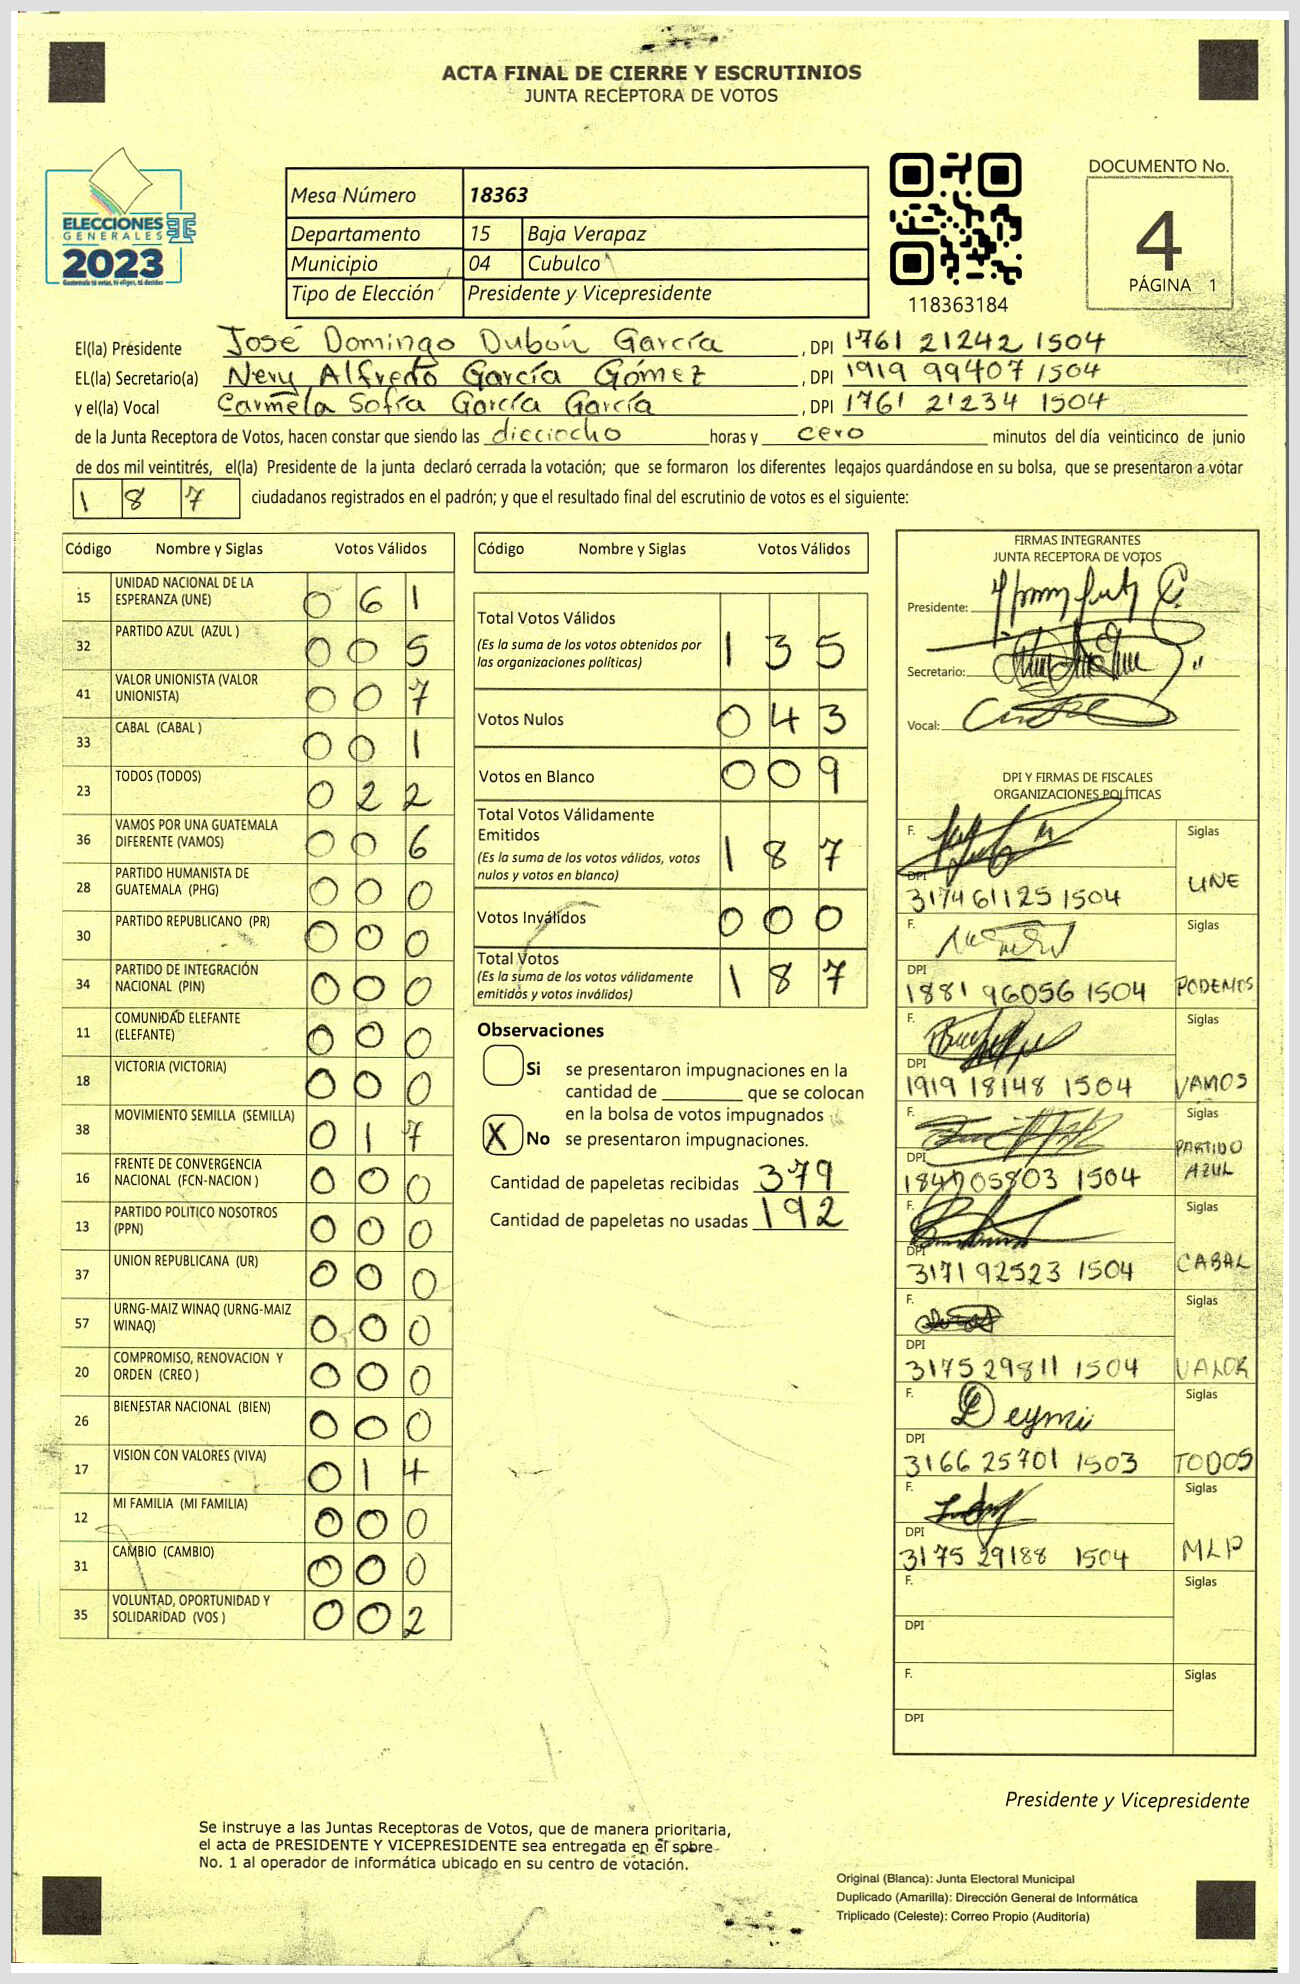 ACTA FINAL DE CIERRE Y ESCRUTINIOS
JUNTA RECEPTORA DE VOTOS
ELECCIONES
GENERALES
2023
Guatemala tú votas, tú eliges, tú decides
Mesa Número 18363
Departamento 15 Baja Verapaz
Municipio 04 Cubulco
Tipo de Elección Presidente y Vicepresidente
118363184
DOCUMENTO No.
4
PÁGINA 1
El(la) Presidente José Domingo Dubón García, DPI 1761 21242 1504
EL(la) Secretario(a) Nery Alfredo García Gómez, DPI 1919 99407 1504
y el(la) Vocal Carmela Sofía García García, DPI 1761 21234 1504
de la Junta Receptora de Votos, hacen constar que siendo las dieciocho horas y cero minutos del día veinticinco de junio
de dos mil veintitrés, el(la) Presidente de la junta declaró cerrada la votación; que se formaron los diferentes legajos guardándose en su bolsa, que se presentaron a votar
1 8 7 ciudadanos registrados en el padrón; y que el resultado final del escrutinio de votos es el siguiente:
Código Nombre y Siglas Votos Válidos
15 UNIDAD NACIONAL DE LA ESPERANZA (UNE) 0 6 1
32 PARTIDO AZUL (AZUL ) 0 0 5
41 VALOR UNIONISTA (VALOR UNIONISTA) 0 0 7
33 CABAL (CABAL ) 0 0 1
23 TODOS (TODOS) 0 2 2
36 VAMOS POR UNA GUATEMALA DIFERENTE (VAMOS) 0 0 6
28 PARTIDO HUMANISTA DE GUATEMALA (PHG) 0 0 0
30 PARTIDO REPUBLICANO (PR) 0 0 0
34 PARTIDO DE INTEGRACIÓN NACIONAL (PIN) 0 0 0
11 COMUNIDAD ELEFANTE (ELEFANTE) 0 0 0
18 VICTORIA (VICTORIA) 0 0 0
38 MOVIMIENTO SEMILLA (SEMILLA) 0 1 7
16 FRENTE DE CONVERGENCIA NACIONAL (FCN-NACION ) 0 0 0
13 PARTIDO POLITICO NOSOTROS (PPN) 0 0 0
37 UNION REPUBLICANA (UR) 0 0 0
57 URNG-MAIZ WINAQ (URNG-MAIZ WINAQ) 0 0 0
20 COMPROMISO, RENOVACION Y ORDEN (CREO ) 0 0 0
26 BIENESTAR NACIONAL (BIEN) 0 0 0
17 VISION CON VALORES (VIVA) 0 1 4
12 MI FAMILIA (MI FAMILIA) 0 0 0
31 CAMBIO (CAMBIO) 0 0 0
35 VOLUNTAD, OPORTUNIDAD Y SOLIDARIDAD (VOS ) 0 0 2
Código Nombre y Siglas Votos Válidos
Total Votos Válidos 1 3 5
(Es la suma de los votos obtenidos por
las organizaciones políticas)
Votos Nulos 0 4 3
Votos en Blanco 0 0 9
Total Votos Válidamente
Emitidos 1 8 7
(Es la suma de los votos válidos, votos
nulos y votos en blanco)
Votos Inválidos 0 0 0
Total Votos 1 8 7
(Es la suma de los votos válidamente
emitidos y votos inválidos)
Observaciones
Si se presentaron impugnaciones en la
cantidad de ________ que se colocan
en la bolsa de votos impugnados
X No se presentaron impugnaciones.
Cantidad de papeletas recibidas 379
Cantidad de papeletas no usadas 192
FIRMAS INTEGRANTES
JUNTA RECEPTORA DE VOTOS
Presidente:
Secretario:
Vocal:
DPI Y FIRMAS DE FISCALES
ORGANIZACIONES POLÍTICAS
F. Siglas
DPI 3174 61125 1504 UNE
F. Siglas
DPI 1881 96056 1504 PODEMOS
F. Siglas
DPI 1919 18148 1504 VAMOS
F. Siglas
DPI 1504 PARTIDO AZUL
F. Siglas
DPI 3171 92523 1504 CABAL
F. Siglas
DPI 3175 29811 1504 VALOR
F. Deymi Siglas
DPI 3166 25701 1503 TODOS
F. Siglas
DPI 3175 29188 1504 MLP
F. Siglas
DPI
F. Siglas
DPI
Presidente y Vicepresidente
Se instruye a las Juntas Receptoras de Votos, que de manera prioritaria,
el acta de PRESIDENTE Y VICEPRESIDENTE sea entregada en el sobre
No. 1 al operador de informática ubicado en su centro de votación.
Original (Blanca): Junta Electoral Municipal
Duplicado (Amarilla): Dirección General de Informática
Triplicado (Celeste): Correo Propio (Auditoría)